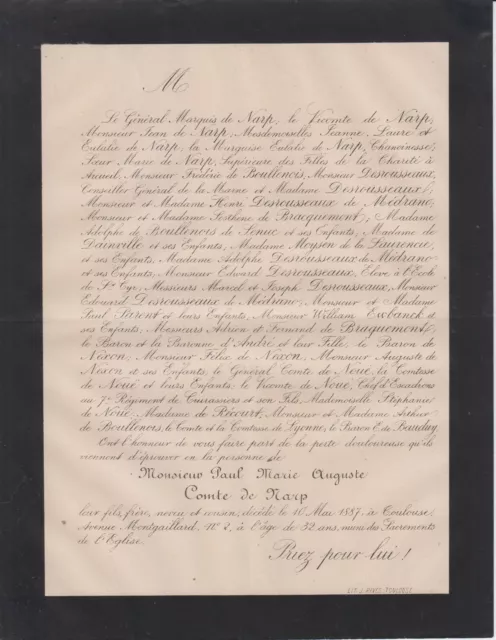 M
Le Général Marquis de Narp, le Vicomte de Narp,
Monsieur Jean de Narp, Mesdemoiselles Jeanne, Laure et
Eulalie de Narp, la Marquise Eulalie de Narp, Chanoinesse,
Sœur Marie de Narp, Supérieure des Filles de la Charité à
Arcueil, Monsieur Frédéric de Boullenois, Monsieur Desrousseaux,
Conseiller Général de la Marne et Madame Desrousseaux,
Monsieur et Madame Henri Desrousseaux de Médrano,
Monsieur et Madame Sosthène de Bracquemont, Madame
Adolphe de Boullenois de Senuc et ses Enfants, Madame de
Dainville et ses Enfants, Madame Moysen de la Laurencie,
et ses Enfants, Madame Adolphe Desrousseaux de Médrano
et ses Enfants, Monsieur Edward Desrousseaux, Elève à l'Ecole
de St Cyr, Messieurs Marcel et Joseph Desrousseaux, Monsieur
Edouard Desrousseaux de Médrano, Monsieur et Madame
Paul et leurs Enfants, Monsieur William Ewbanck et
ses Enfants, Messieurs Adrien et Fernand de Braquemont,
le Baron et la Baronne d'André et leur Fille, le Baron de
Nexon, Monsieur Félix de Nexon, Monsieur Auguste de
Nexon et ses Enfants, le Général Comte de Noüe, la Comtesse
de Noüe et leurs Enfants, le Vicomte de Noüe, Chef d'Escadrons
au 7e Régiment de Cuirassiers et son Fils, Mademoiselle Stéphanie
de Noüe, Madame de Récourt, Monsieur et Madame Arthur
de Boullenois, le Comte et la Comtesse de Lyonne, le Baron E. de Beauday
Ont l'honneur de vous faire part de la perte douloureuse qu'ils
viennent d'éprouver en la personne de
Monsieur Paul Marie Auguste
Comte de Narp
leur fils, frère, neveu et cousin, décédé le 10 Mai 1887, à Toulouse,
Avenue Montgaillard, No 2, à l'âge de 32 ans, muni des Sacrements
de l'Eglise.
Priez pour lui !